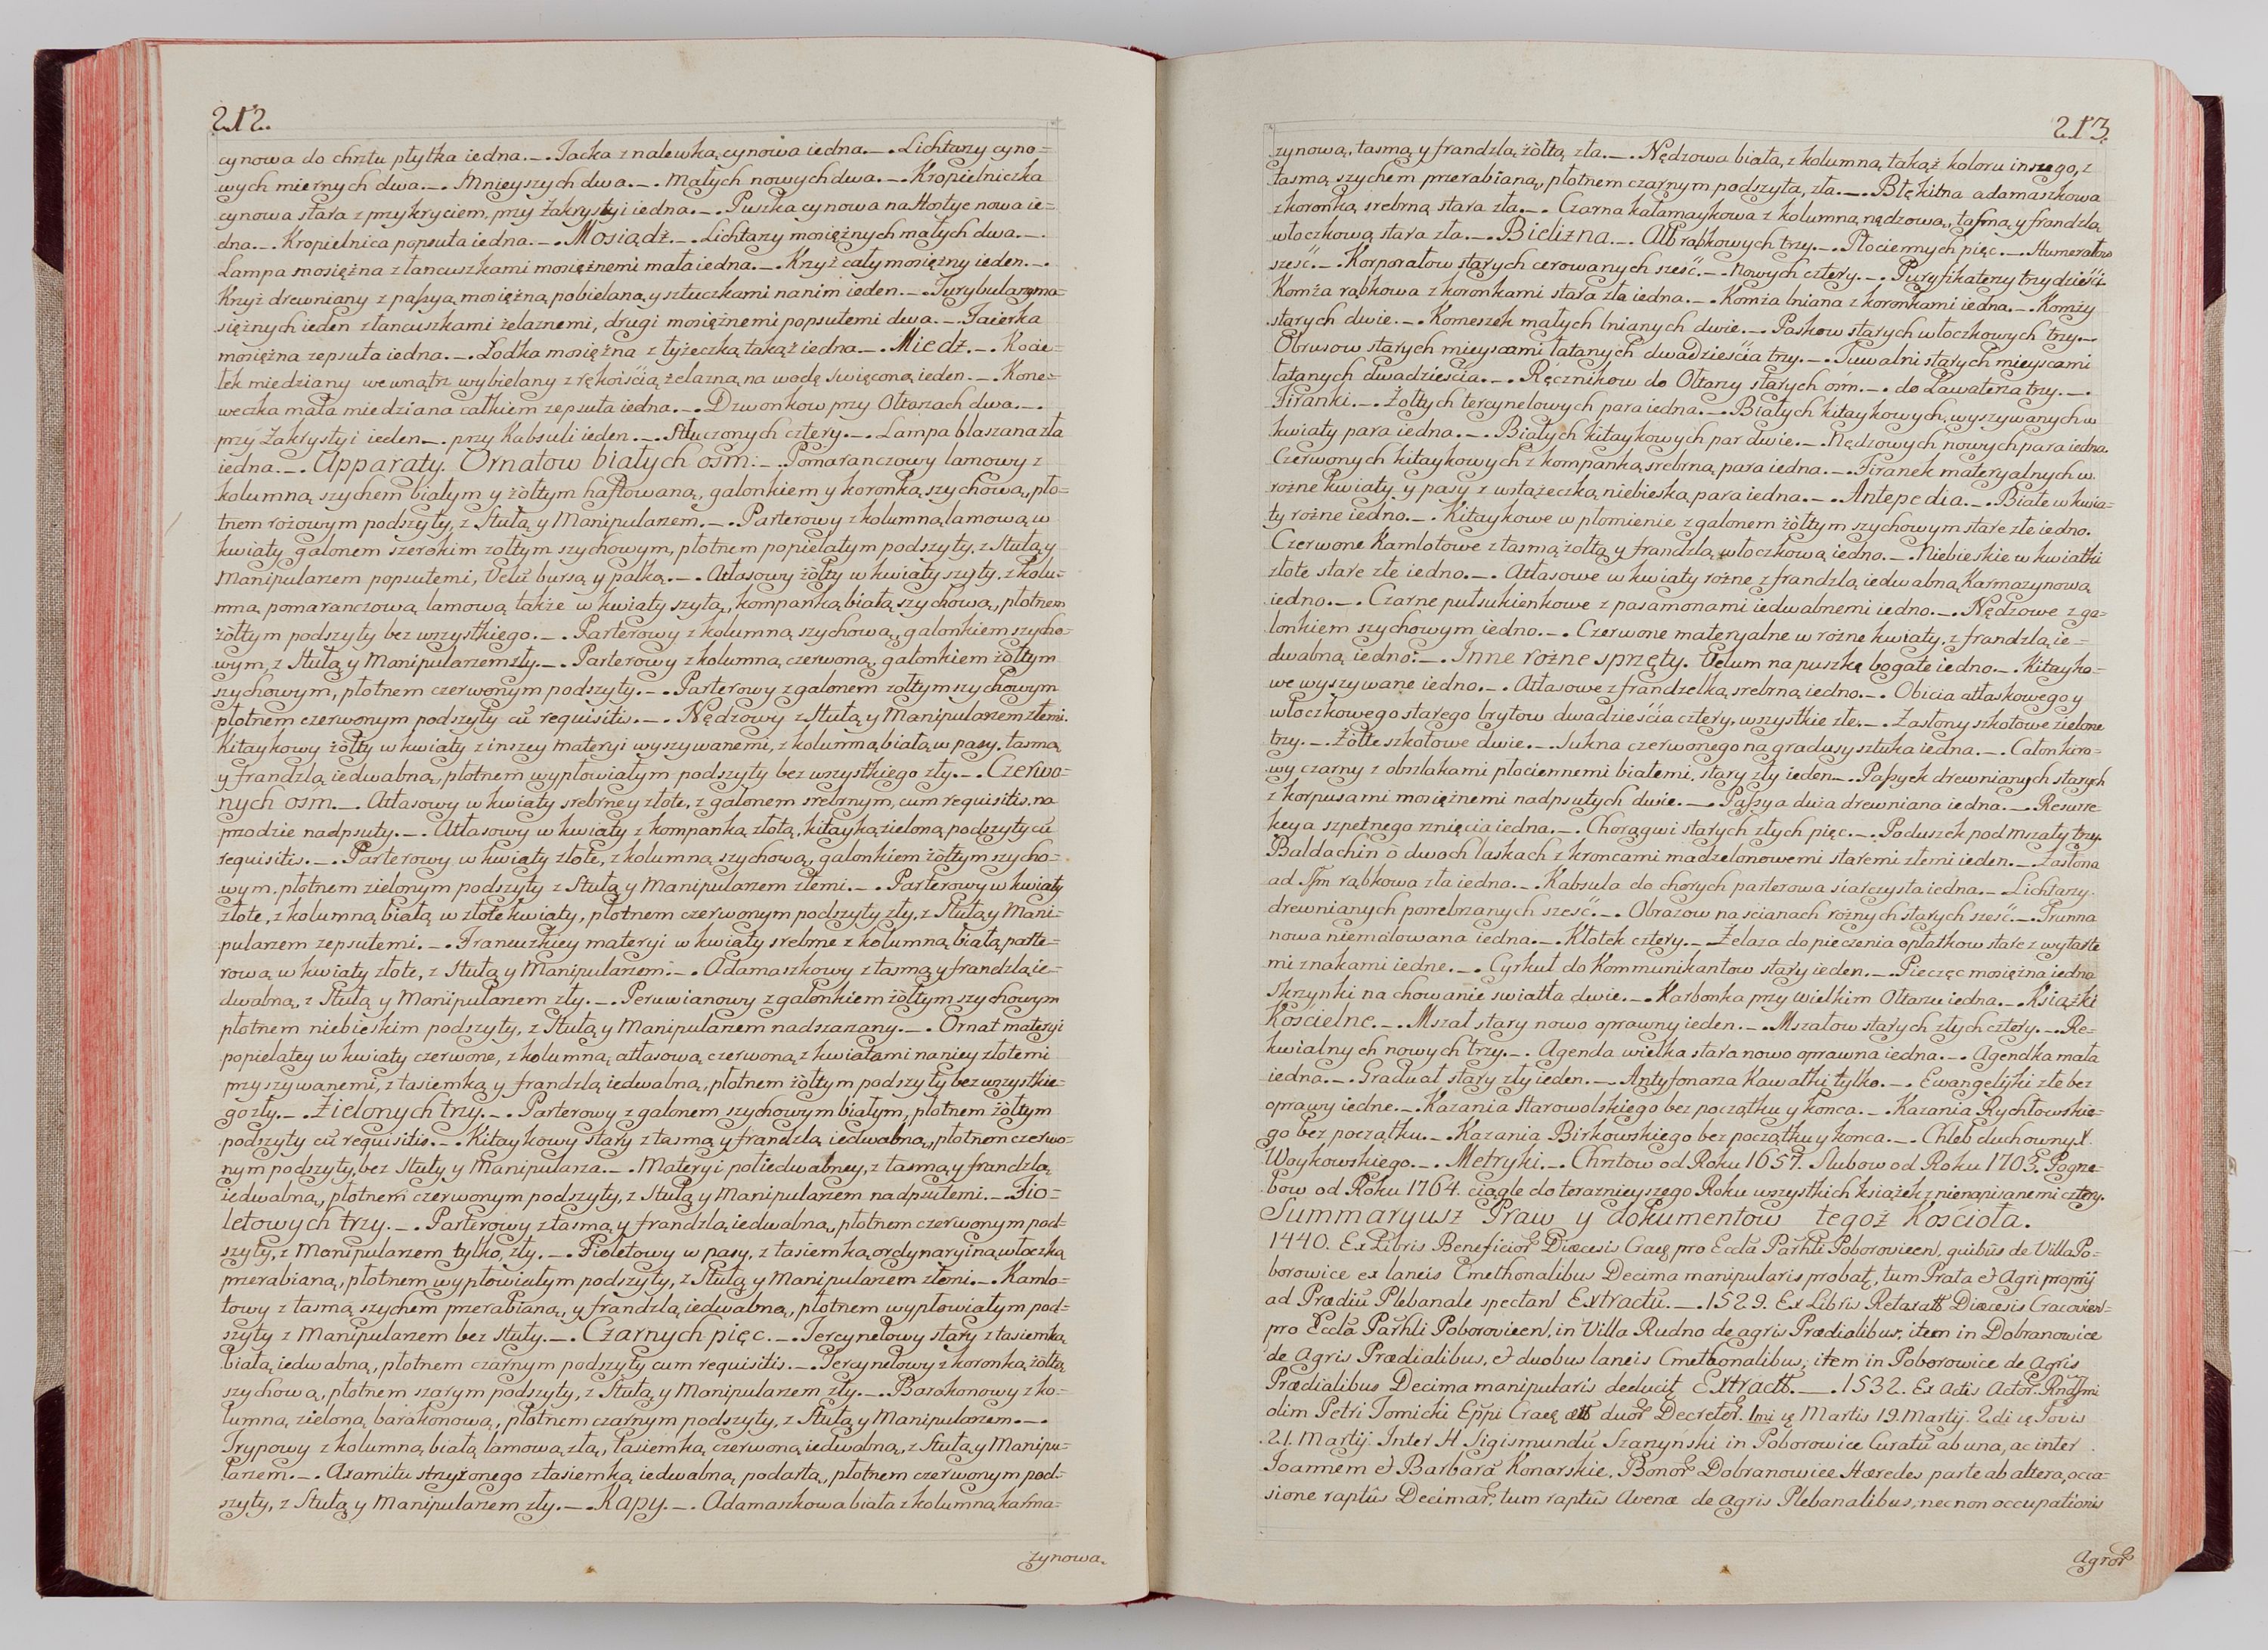 212.
cynowa do chrztu płytka iedna._. Tacka z nalewką cynowa iedna._. Lichtarzy cyno=
wych miernych dwa._. Mnieyszych dwa._. Małych nowych dwa._. Kropielniczka
cynowa stara z przykryciem, przy Zakrystyi iedna._. Puszka cynowa na Hostye nowa ie=
dna._. Kropielnica popsuta iedna._. Mosiądź._. Lichtarzy mosiężnych małych dwa._.
Lampa mosiężna z łancuszkami mosiężnemi mała iedna._. Krzyż cały mosiężny ieden._.
Krzyż drewniany z passyą mosiężną pobielaną y sztuczkami na nim ieden._. Turybularzy mo=
siężnych ieden z łancuszkami żelaznemi, drugi mosiężnemi popsutemi dwa._. Tacerka
mosiężna zepsuta iedna._. Łodka mosiężna z łyżeczką takąż iedna._. Miedź._. Kocie=
łek miedziany wewnątrz wybielany z rękoiścią żelazną na wodę swięconą ieden._. Kone=
weczka mała miedziana całkiem zepsuta iedna._. Dzwonkow przy Ołtarzach dwa._.
przy Zakrystyi ieden._. przy Kabsuli ieden._. Stłuczonych cztery._. Lampa blaszana zła
iedna._. Apparaty. Ornatow białych ośm._. Pomaranczowy lamowy z
kolumną szychem białym y żółtym haftowaną, galonkiem y koronką szychową, płó=
tnem rożowym podszyty, z Stułą y Manipularzem._. Parterowy z kolumną lamową w
kwiaty galonem szerokim żołtym szychowym, płotnem popielatym podszyty, z Stułą y
Manipularzem popsutemi, Velū bursą y palką._. Atłasowy żółty w kwiaty szyty, z kolu=
mną pomaranczową lamową także w kwiaty szytą, kompanką białą szychową, płotnem
żółtym podszyty bez wszystkiego._. Parterowy z kolumną szychową, galonkiem szycho=
wym, z Stułą y Manipularzem zły._. Parterowy z kolumną czerwoną, galonkiem żółtym
szychowym, płotnem czerwonym podszyty._. Parterowy z galonem żołtym szychowym
płotnem czerwonym podszyty cū requisitis._. Nędzowy z Stułą y Manipularzem złemi.
Kitaykowy żółty w kwiaty z inszey materyi wyszywanemi, z kolumną białą w pasy, tasmą
y frandzlą iedwabną, płotnem wypłowiałym podszyty bez wszystkiego zły._. Czerwo=
nych ośm._. Atłasowy w kwiaty srebrne y złote, z galonem srebrnym, cum requisitis, na
przodzie nadpsuty._. Atłasowy w kwiaty z kompanką złotą, kitayką zieloną podszyty cū
requisitis._. Parterowy w kwiaty złote, z kolumną szychową, galonkiem żółtym szycho=
wym, płotnem zielonym podszyty z Stułą y Manipularzem złemi._. Parterowy w kwiaty
złote, z kolumną białą w złote kwiaty, płotnem czerwonym podszyty zły, z Stułą y Mani=
pularzem zepsutemi._. Francuzkiey materyi w kwiaty srebrne z kolumną białą, parte=
rową w kwiaty złote, z Stułą y Manipularzem._. Adamaszkowy z tasmą y frandzlą ie=
dwabną, z Stułą y Manipularzem zły._. Peruwianowy z galonkiem żółtym szychowym
płotnem niebieskim podszyty, z Stułą y Manipularzem nadszarzany._. Ornat materyi
popielatey w kwiaty czerwone, z kolumną atłasową czerwoną z kwiatami na niey złotemi
przyszywanemi, z tasiemką y frandzlą iedwabną, płotnem żółtym podszyty bez wszystkie=
go zły._. Zielonych trzy._. Parterowy z galonem szychowym białym, płotnem żółtym
podszyty cū requisitis._. Kitaykowy stary z tasmą y frandzlą iedwabną, płotnem czerwo=
nym podszyty, bez Stuły y Manipularza._. Materyi połiedwabney, z tasmą y frandzlą
iedwabną, płotnem czerwonym podszyty, z Stułą y Manipularzem nadpsutemi._. Fio=
letowych trzy._. Parterowy z tasmą y frandzlą iedwabną, płotnem czerwonym pod=
szyty, z Manipularzem tylko, zły._. Fioletowy w pasy, z tasiemką ordynaryiną włoczką
przerabianą, płotnem wypłowiałym podszyty, z Stułą y Manipularzem złemi._. Kamlo=
towy z tasmą szychem przerabianą, y frandzlą iedwabną, płotnem wypłowiałym pod=
szyty z Manipularzem bez Stuły._. Czarnych pięc._. Tercynelowy stary z tasiemką
białą iedwabną, płotnem czarnym podszyty cum requisitis._. Tercynelowy z koronką żółtą
szychową, płotnem szarym podszyty, z Stułą y Manipularzem zły._. Barakonowy z ko=
lumną zieloną barakonową, płotnem czarnym podszyty, z Stułą y Manipularzem._.
Trypowy z kolumną białą lamową złą, tasiemką czerwoną iedwabną, z Stułą y Manipu=
larzem._. Axamitu strzyżonego z tasiemką iedwabną podartą, płotnem czerwonym pod=
szyty, z Stułą y Manipularzem zły._. Kapy._. Adamaszkowa biała z kolumną karma=
zynową.
213.
zynową, tasmą y frandzlą żółtą zła._. Nędzowa biała, z kolumną takąż koloru inszego, z
tasmą szychem przerabianą, płotnem czarnym podszyta, zła._. Błękitna adamaszkowa
z koronką srebrną stara zła._. Czarna kałamaykowa z kolumną nędzową, tasmą y frandzlą
włoczkową stara zła._. Bielizna._. Alb rąbkowych trzy._. Płociennych pięc._. Humerałow
sześć._. Korporałow starych cerowanych sześć._. Nowych cztery._. Puryfikaterzy trzydzieści.
Komża rąbkowa z koronkami stara zła iedna._. Komża lniana z koronkami iedna._. Komży
starych dwie._. Komeszek małych lnianych dwie._. Paskow starych włoczkowych trzy._.
Obrusow starych mieyscami łatanych dwadzieścia trzy._. Tuwalni starych mieyscami
łatanych dwadzieścia._. Ręcznikow do Ołtarzy starych ośm._. do Lawaterza trzy._.
Firanki._. Żołtych tercynelowych para iedna._. Białych kitaykowych, wyszywanych w
kwiaty para iedna._. Białych kitaykowych par dwie._. Nędzowych nowych para iedna.
Czerwonych kitaykowych z kompanką srebrną para iedna._. Firanek materyalnych w
rożne kwiaty y pasy z wstążeczką niebieską para iedna._. Antepedia._. Białe w kwia=
ty rożne iedno._. Kitaykowe w płomienie z galonem żółtym szychowym stare złe iedno.
Czerwone Kamlotowe z tasmą żołtą y frandzlą włoczkową iedno._. Niebieskie w kwiatki
złote stare złe iedno._. Atłasowe w kwiaty rożne z frandzlą iedwabną Karmazynową
iedno._. Czarne pułsukienkowe z pasamonami iedwabnemi iedno._. Nędzowe z ga=
lonkiem szychowym iedno._. Czerwone materyalne w rożne kwiaty, z frandzlą ie=
dwabną iedno._. Inne rożne sprzęty. Velum na puszkę bogate iedno._. Kitayko=
we wyszywane iedno._. Atłasowe z frandzelką srebrną iedno._. Obicia atłaskowego y
włoczkowego starego brytow dwadzieścia cztery, wszystkie złe._. Zasłony szkotowe zielone
trzy._. Żółte szkotowe dwie._. Sukna czerwonego na gradusy sztuka iedna._. Całon kiro=
wy czarny z obszlakami płociennemi białemi, stary zły ieden._. Passyek drewnianych starych
z korpusami mosiężnemi nadpsutych dwie._. Passya duża drewniana iedna._. Resurre=
kcya szpetnego rznięcia iedna._. Chorągwi starych złych pięc._. Poduszek pod mszały trzy.
Baldachin o dwoch laskach z kroncami madzelonowemi staremi złemi ieden._. Zasłona
ad Ssm rąbkowa zła iedna._. Kabsula do chorych parterowa siarczysta iedna._. Lichtarzy
drewnianych posrebrzanych sześć._. Obrazow na scianach rożnych starych sześć._. Trunna
nowa niemalowana iedna._. Kłotek cztery._. Żelaza do pieczenia opłatkow stare z wytarte
mi znakami iedne._. Cyrkuł do Kommunikantow stary ieden._. Pieczęc mosiężna iedna
Skrzynki na chowanie swiatła dwie._. Karbonka przy wielkim Ołtarzu iedna._. Książki
Kościelne._. Mszał stary nowo oprawny ieden._. Mszałow starych złych cztery._. Re=
kwialnych nowych trzy._. Agenda wielka stara nowo oprawna iedna._. Agendka mała
iedna._. Graduał stary zły ieden._. Antyfonarza Kawałki tylko._. Ewangeliyki złe bez
oprawy iedne._. Kazania Starowolskiego bez początku y konca._. Kazania Rychłowskie=
go bez początku._. Kazania Birkowskiego bez początku y konca._. Chleb duchowny X.
Woykowskiego._. Metryki._. Chrztow od Roku 1657. Slubow od Roku 1703. Pogrze=
bow od Roku 1764. ciągle do teraznieyszego Roku wszystkich książek z nienapisanemi cztery.
Summaryusz Praw y dokumentow tegoż Kościoła.
1440. Ex Libris Beneficior Diæcesis Crac pro Eccla Parhli Poborovicen, quibus de Villa Po=
borowice ex laneis Cmethonalibus Decima manipularis probat, tum Prata et Agri proprij
ad Prædiū Plebanale spectant Extractū._. 1529. Ex Libris Retaxatt Diæcesis Cracovien=
pro Eccla Parhli Poborovicen, in Villa Rudno de agris Prædialibus, item in Dobranowice
de Agris Prædialibus, et duobus laneis Cmethonalibus, item in Poborowice de Agris
Prædialibus Decima manipularis deducit Extractt._. 1532. Ex Actis Actor. Rndssmi
olim Petri Tomicki Eppi Crac duor Decretor. 1mi Martis 19. Martij. 2di Jovis
21. Martij. Inter H Sigismundū Szarzyński in Poborowice Curatū ab una, ac inter
Joannem et Barbarā Konarskie, Bonor Dobranowice Hæredes parte ab altera, occa=
sione raptūs Decimar, tum raptūs Avenæ de agris Plebanalibus, nec non occupationis
Agror